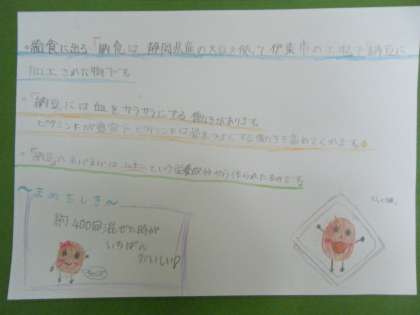 ・給食に出る「納豆」は静岡県産の大豆を使って伊東市の工場で納豆に
加工された物です
・「納豆」には血をサラサラにする働きがあります
ビタミンKが豊富で ビタミンKは骨をつよくする働きを高めてくれます
・「納豆」のねばねばは という から作られたものです
〜まめちしき〜
約400回混ぜた時が
いちばん
おいしい